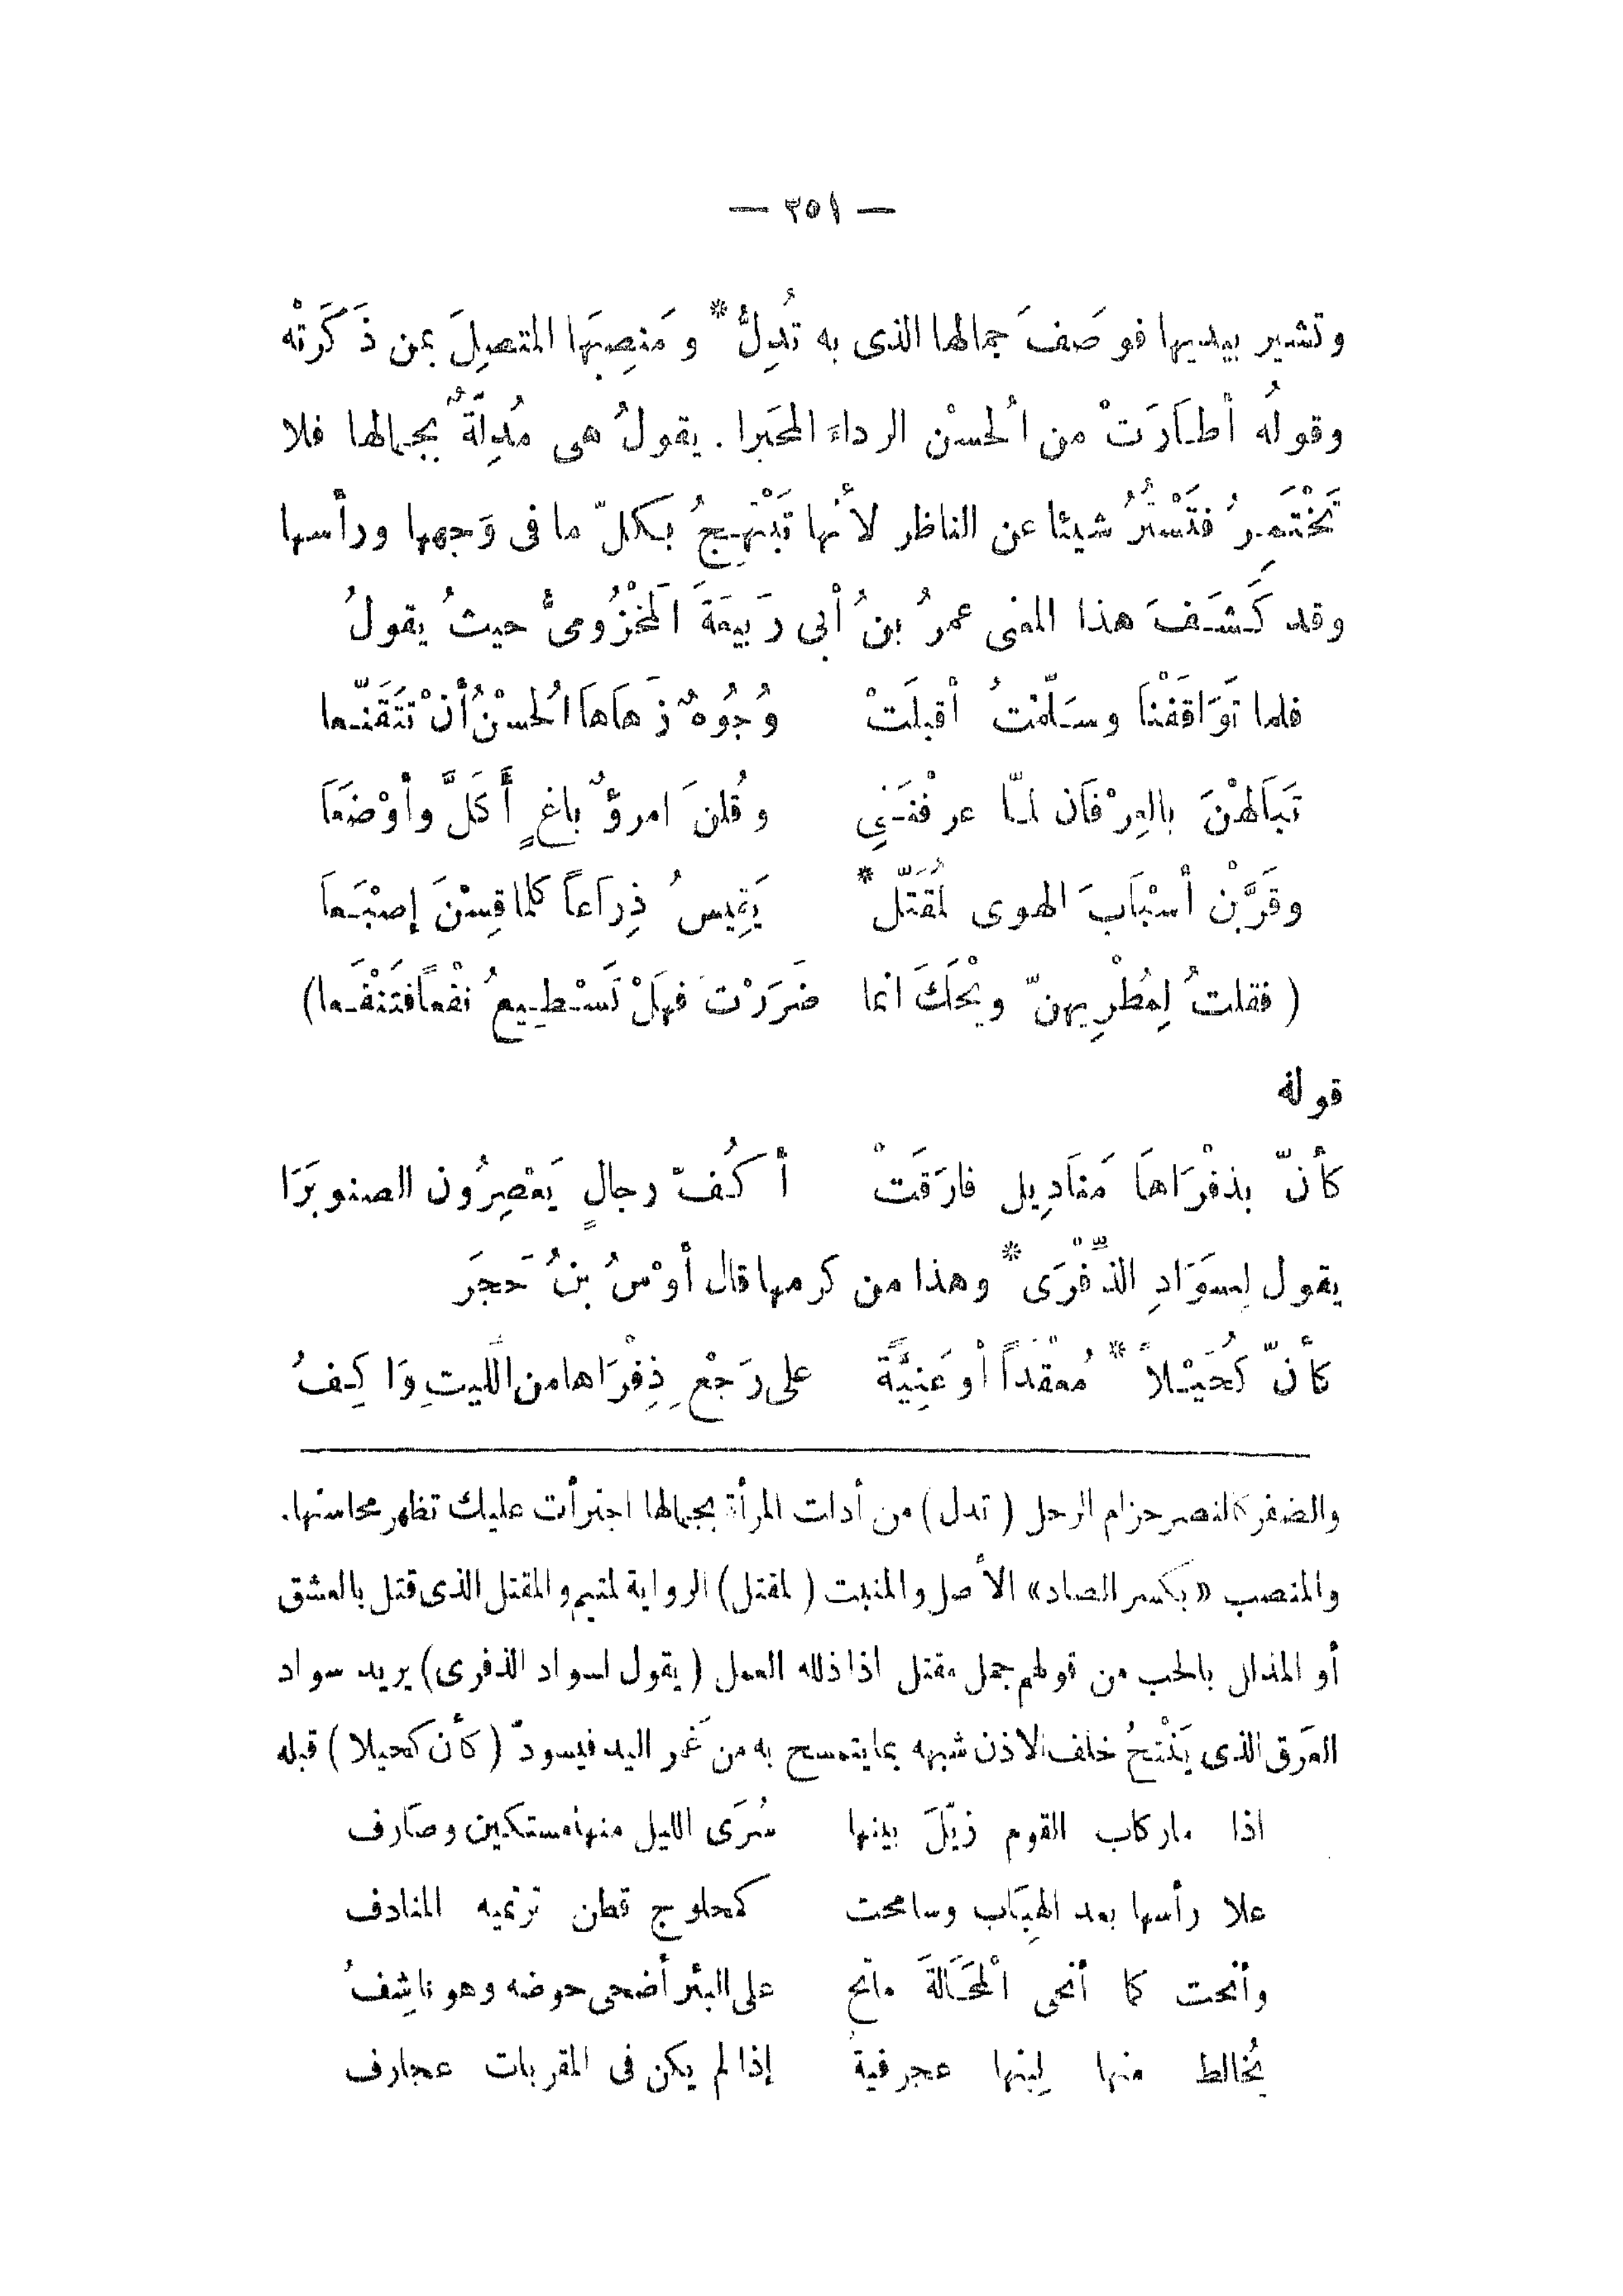 — ٢٥١ —
وتشير بيديها فوصَفَ جمالها الذى به تُدِلُّ * ومَنصِبَها المتصِلَ بمن ذَكَرتْه
وقولُه أطَارَتْ من الُحسْن الرداءَ المحَبرا . يقولُ هى مُدِلّةٌ بجمالها فلا
تَخْتَمِرُ فتَسْتُرُ شيئا عن الناظر لأنها تَبْتَهِجُ بكلّ ما فى وَجهها ورأسها
وقد كَشَفَ هذا المعنى عمرُ بنُ أبى رَبيعَةَ المَخْزُومىُّ حيثُ يقولُ
فلما تَوَاقَفْنَا وسَلّمْتُ أقبلَتْ وُجُوهٌ زَهاَهاَ الُحسْنُ أنْ تتَقَنّعا
تَبَالهْنَ بالعِرْفَان لمّا عرفْنَنِي وقُلنَ امرؤٌ باغٍ أَكَلَّ وأوْضَعَا
وقَرَّبْن أسْبَابَ الهوى لمُقَتّل * يَقِيسُ ذِرَاعاً كلما قِسْنَ إصْبَعاَ
( فقلتُ لِمُطْرِيهنّ ويْحَكَ انما ضَرَرْتَ فهَلْ تَسْطِيعُ نفْعاً فتَنْفَعا )
قوله
كأنّ بذفْرَاهاَ مَناَدِيل فارَقَتْ أكُفّ رجالٍ يَعْصِرُون الصنوبَرَا
يقول لِسوَادِ الذِّفْرَى * وهذا من كرمها قال أوْسُ بنُ حَجَرَ
كأنّ كُحَيْلاً * مُعقَداً أو عَنِيَّةً على رَجْعِ ذِفْرَاها من الَّليتِ وَاكِفُ
والضفر كالنصر حزام الرحل ( تدل ) من أدات المرأة بجمالها اجترأت عليك تظهر محاسنها.
والمنصب «بكسر الصاد» الأصل والمنبت ( لمقتل ) الرواية لمتيم والمقتل الذى قتل بالعشق
أو المذال بالحب من قولهم جمل مقتل اذا ذلله العمل ( يقول لسواد الذفرى ) يريد سواد
العَرق الذى يَنْتحُ خلف الاذن شبهه بما يتمسح به من غَمر اليد فيسودّ ( كأن كحيلا ) قبله
اذا ما ركاب القوم زيّلَ بينها سُرَى الليل منها مستكين وصَارف
علا رأسها بعد الهِبَاب وسامحت كمحلوج قطن ترتميه المنادف
وأنحت كما أنحى الْمَحَالَةَ ماتح على البئر أضحى حوضه وهو ناشِفُ
يُخالط منها لِينها عجرفيةُ إذا لم يكن فى المقربات عجارف